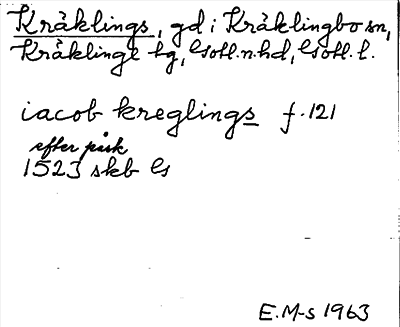 Kräklings, gd i Kräklingbo sn,
Kräklinge tg, Gotl.n.hd, Gotl. l.
iacob kreglings f. 121
efter påsk
1523 skb G
E.M-s 1963